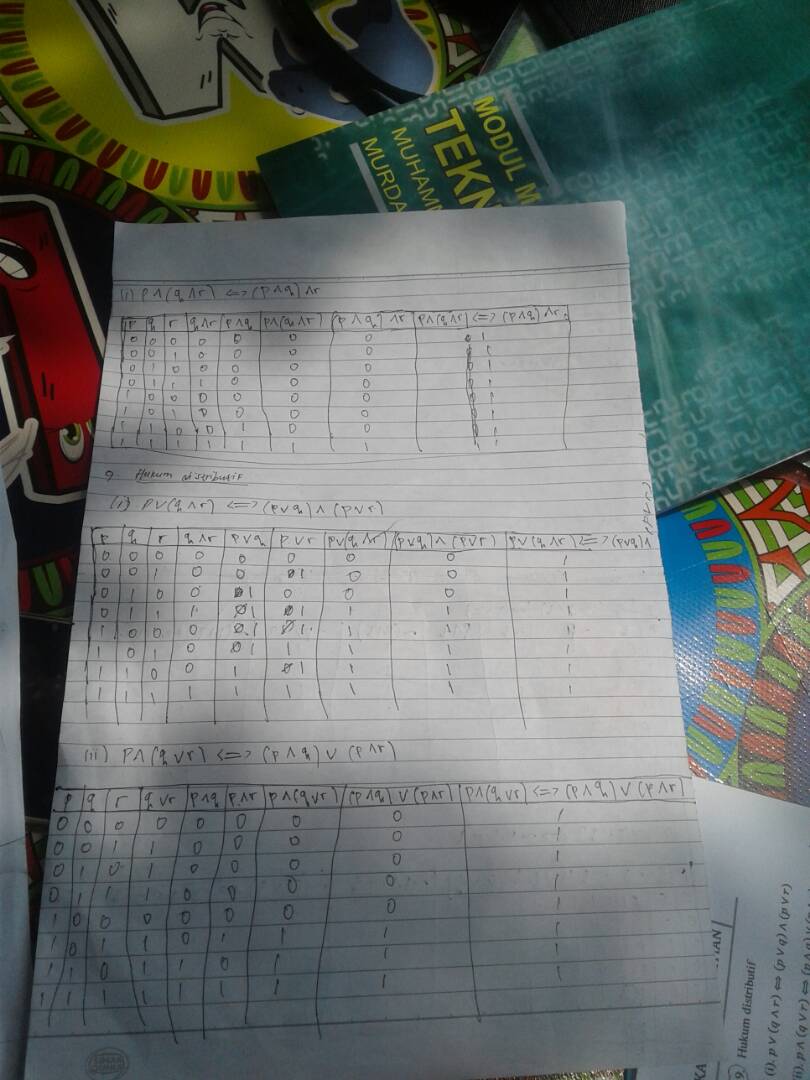 MODUL M
TEKN
MUHAMM
MURDA
(i) p∧(q∧r) <=> (p∧q)∧r
p q r q∧r p∧q p∧(q∧r) (p∧q)∧r p∧(q∧r) <=> (p∧q)∧r
0 0 0 0 0 0 0 1
0 0 1 0 0 0 0 1
0 1 0 0 0 0 0 1
0 1 1 1 0 0 0 1
1 0 0 0 0 0 0 1
1 0 1 0 0 0 0 1
1 1 0 0 1 0 0 1
1 1 1 1 1 1 1 1
9. Hukum distributif
(i) p∨(q∧r) <=> (p∨q)∧(p∨r)
p q r q∧r p∨q p∨r p∨(q∧r) (p∨q)∧(p∨r) p∨(q∧r) <=> (p∨q)∧(p∨r)
0 0 0 0 0 0 0 0 1
0 0 1 0 0 1 0 0 1
0 1 0 0 1 0 0 0 1
0 1 1 1 1 1 1 1 1
1 0 0 0 1 1 1 1 1
1 0 1 0 1 1 1 1 1
1 1 0 0 1 1 1 1 1
1 1 1 1 1 1 1 1 1
(ii) p∧(q∨r) <=> (p∧q)∨(p∧r)
p q r q∨r p∧q p∧r p∧(q∨r) (p∧q)∨(p∧r) p∧(q∨r) <=> (p∧q)∨(p∧r)
0 0 0 0 0 0 0 0 1
0 0 1 1 0 0 0 0 1
0 1 0 1 0 0 0 0 1
0 1 1 1 0 0 0 0 1
1 0 0 0 0 0 0 0 1
1 0 1 1 0 1 1 1 1
1 1 0 1 1 0 1 1 1
1 1 1 1 1 1 1 1
9) Hukum distributif
(i). p∨(q∧r) ⇔ (p∨q)∧(p∨r)